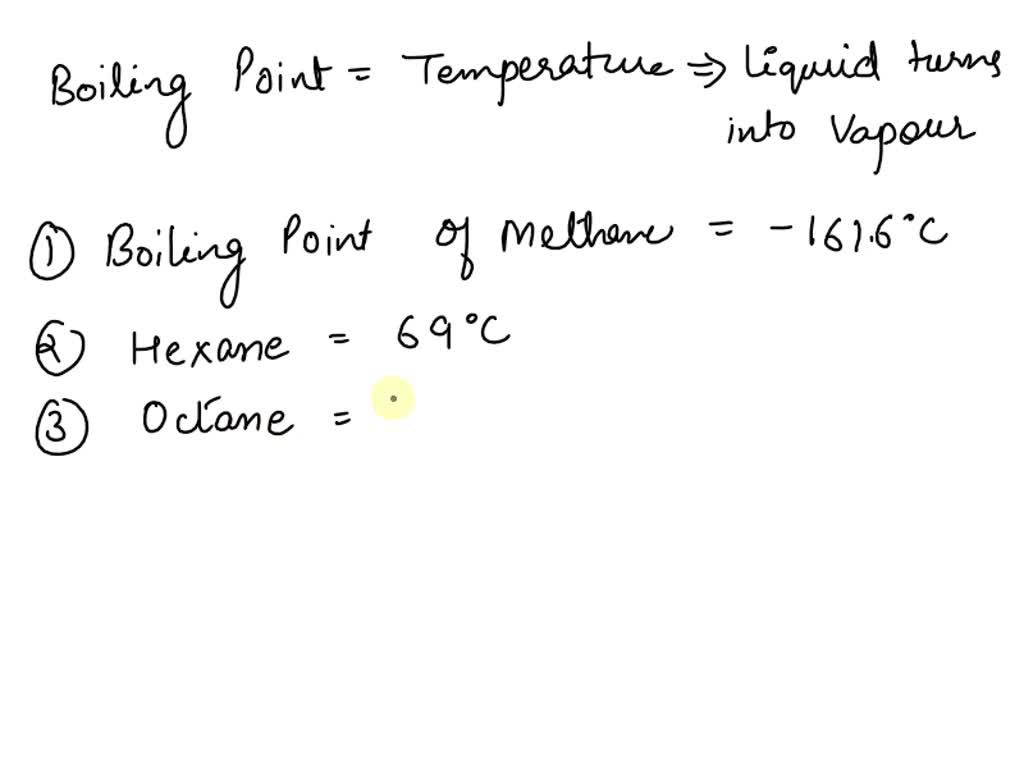 Boiling Point = Temperature ⇒ Liquid turns
into Vapour
① Boiling Point of Methane = -161.6°C
② Hexane = 69°C
③ Octane =